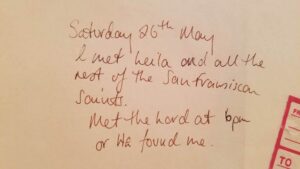 Saturday 26th May
I met Leila and all the
rest of the San Fransiscan
Saints.
Met the Lord at 6pm
or He found me.
TO